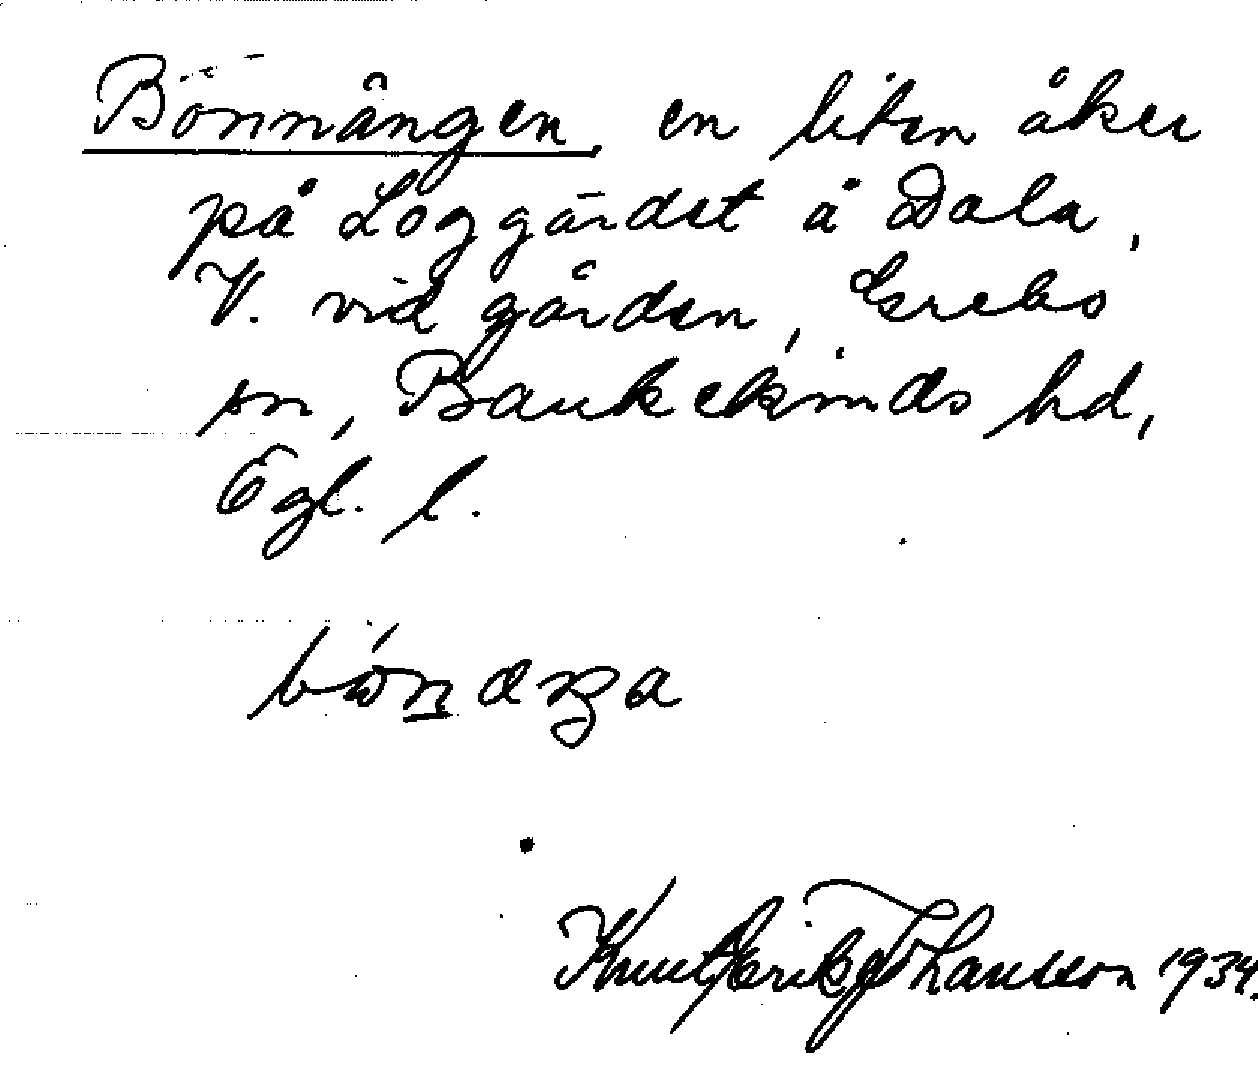 Bönnängen, en liten åker
på Loggärdet å Dala,
V. vid gården, Grebo
sn, Bankekinds hd,
Ögl. l.
Knut Erik Johansson 1934.